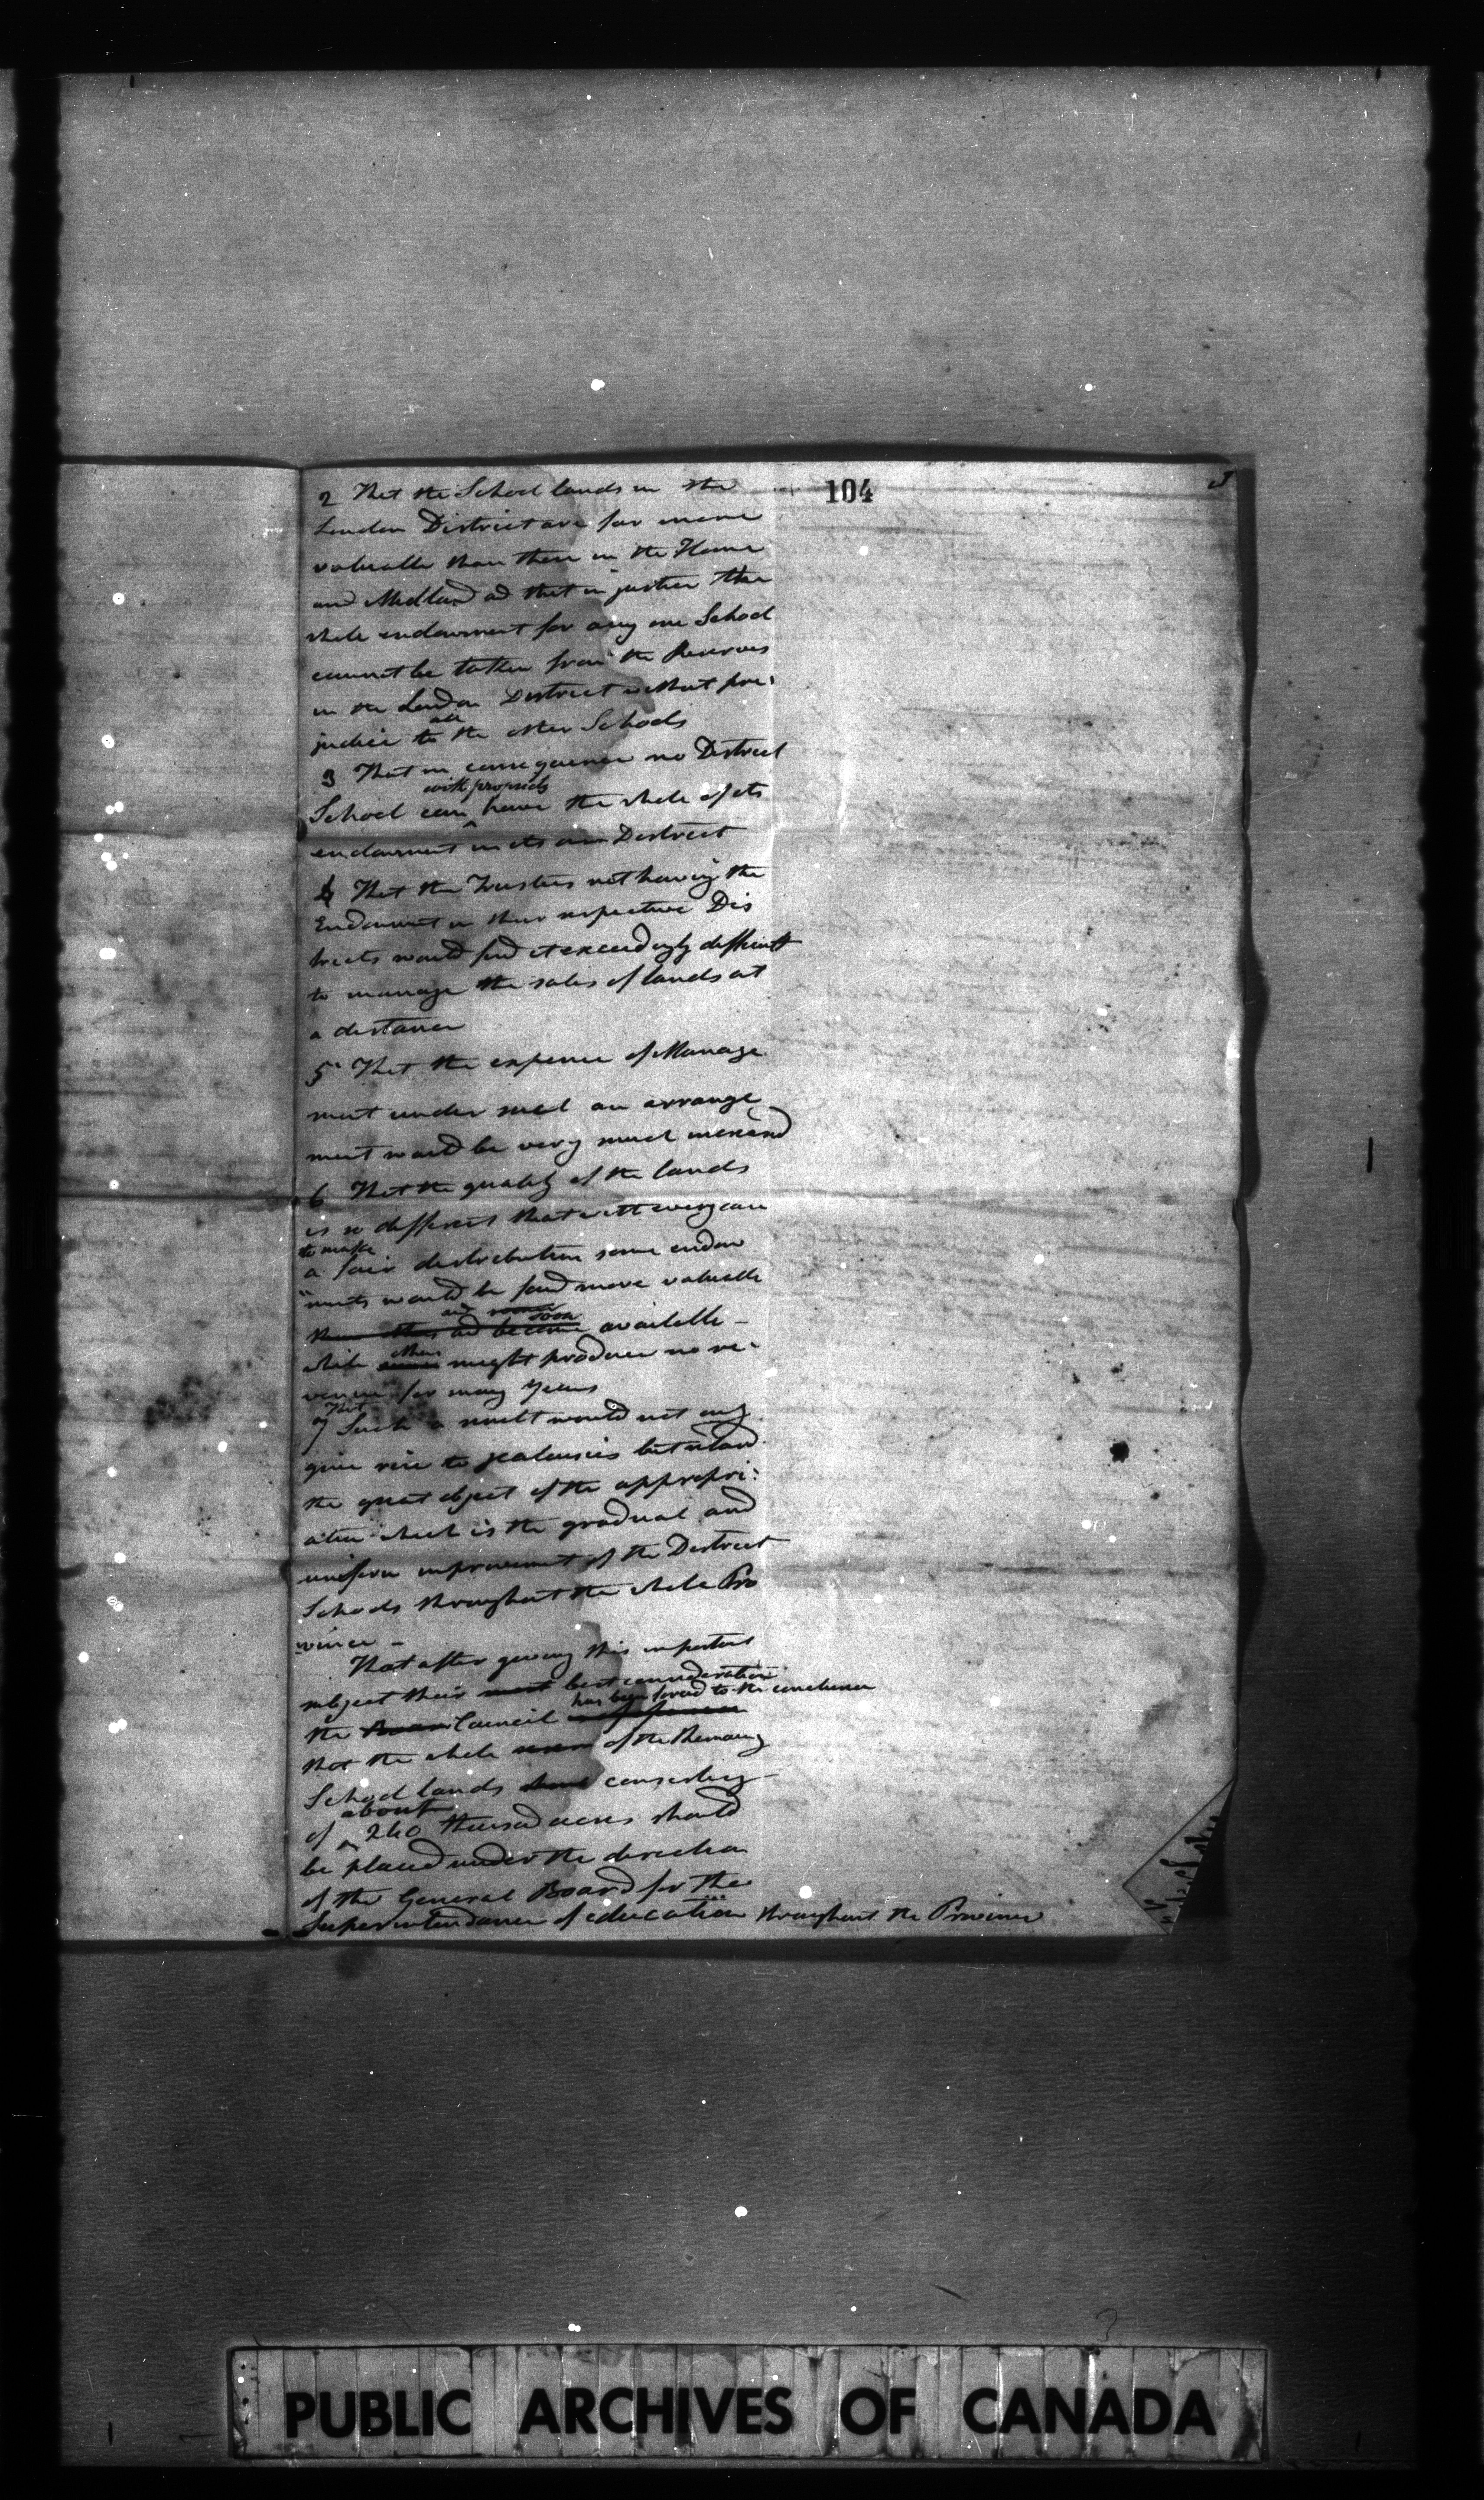 104
3
2 That the School lands in the
London District are far more
valuable than those in the Home
and Midland ad that in justice the
whole endowment for any one School
cannot be taken from the Reserves
in the London District without pre:
judice to all the other Schools
3 That in consequence no District
School can with propriety have the whole of its
endowment in its own District
4 That the Trustees not having the
Endowment in their respective Dis
tricts would find it exceedingly difficult
to manage the sales of lands at
a distance
5 That the expence of Manage
ment under such an arrange
ment would be very much increased
6 That the quality of the lands
is so different that with every care
to make
a fair distribution some endow
ments would be found more valuable
and soon
and become available -
while others might produce no re:
venue for many years
7 That Such a result would not only
give rise to jealousies but retard
the great object of the appropri:
ation which is the gradual and
uniform improvement of the District
Schools throughout the whole Pro
vince -
That after giving this important
subject their best consideration
the Council has been forced to the conclusion
that the whole of the Remaing
School lands consisting
of about 240 thousand acres should
be placed under the direction
of the General Board for the
Superintendance of education throughout the Province
PUBLIC ARCHIVES OF CANADA